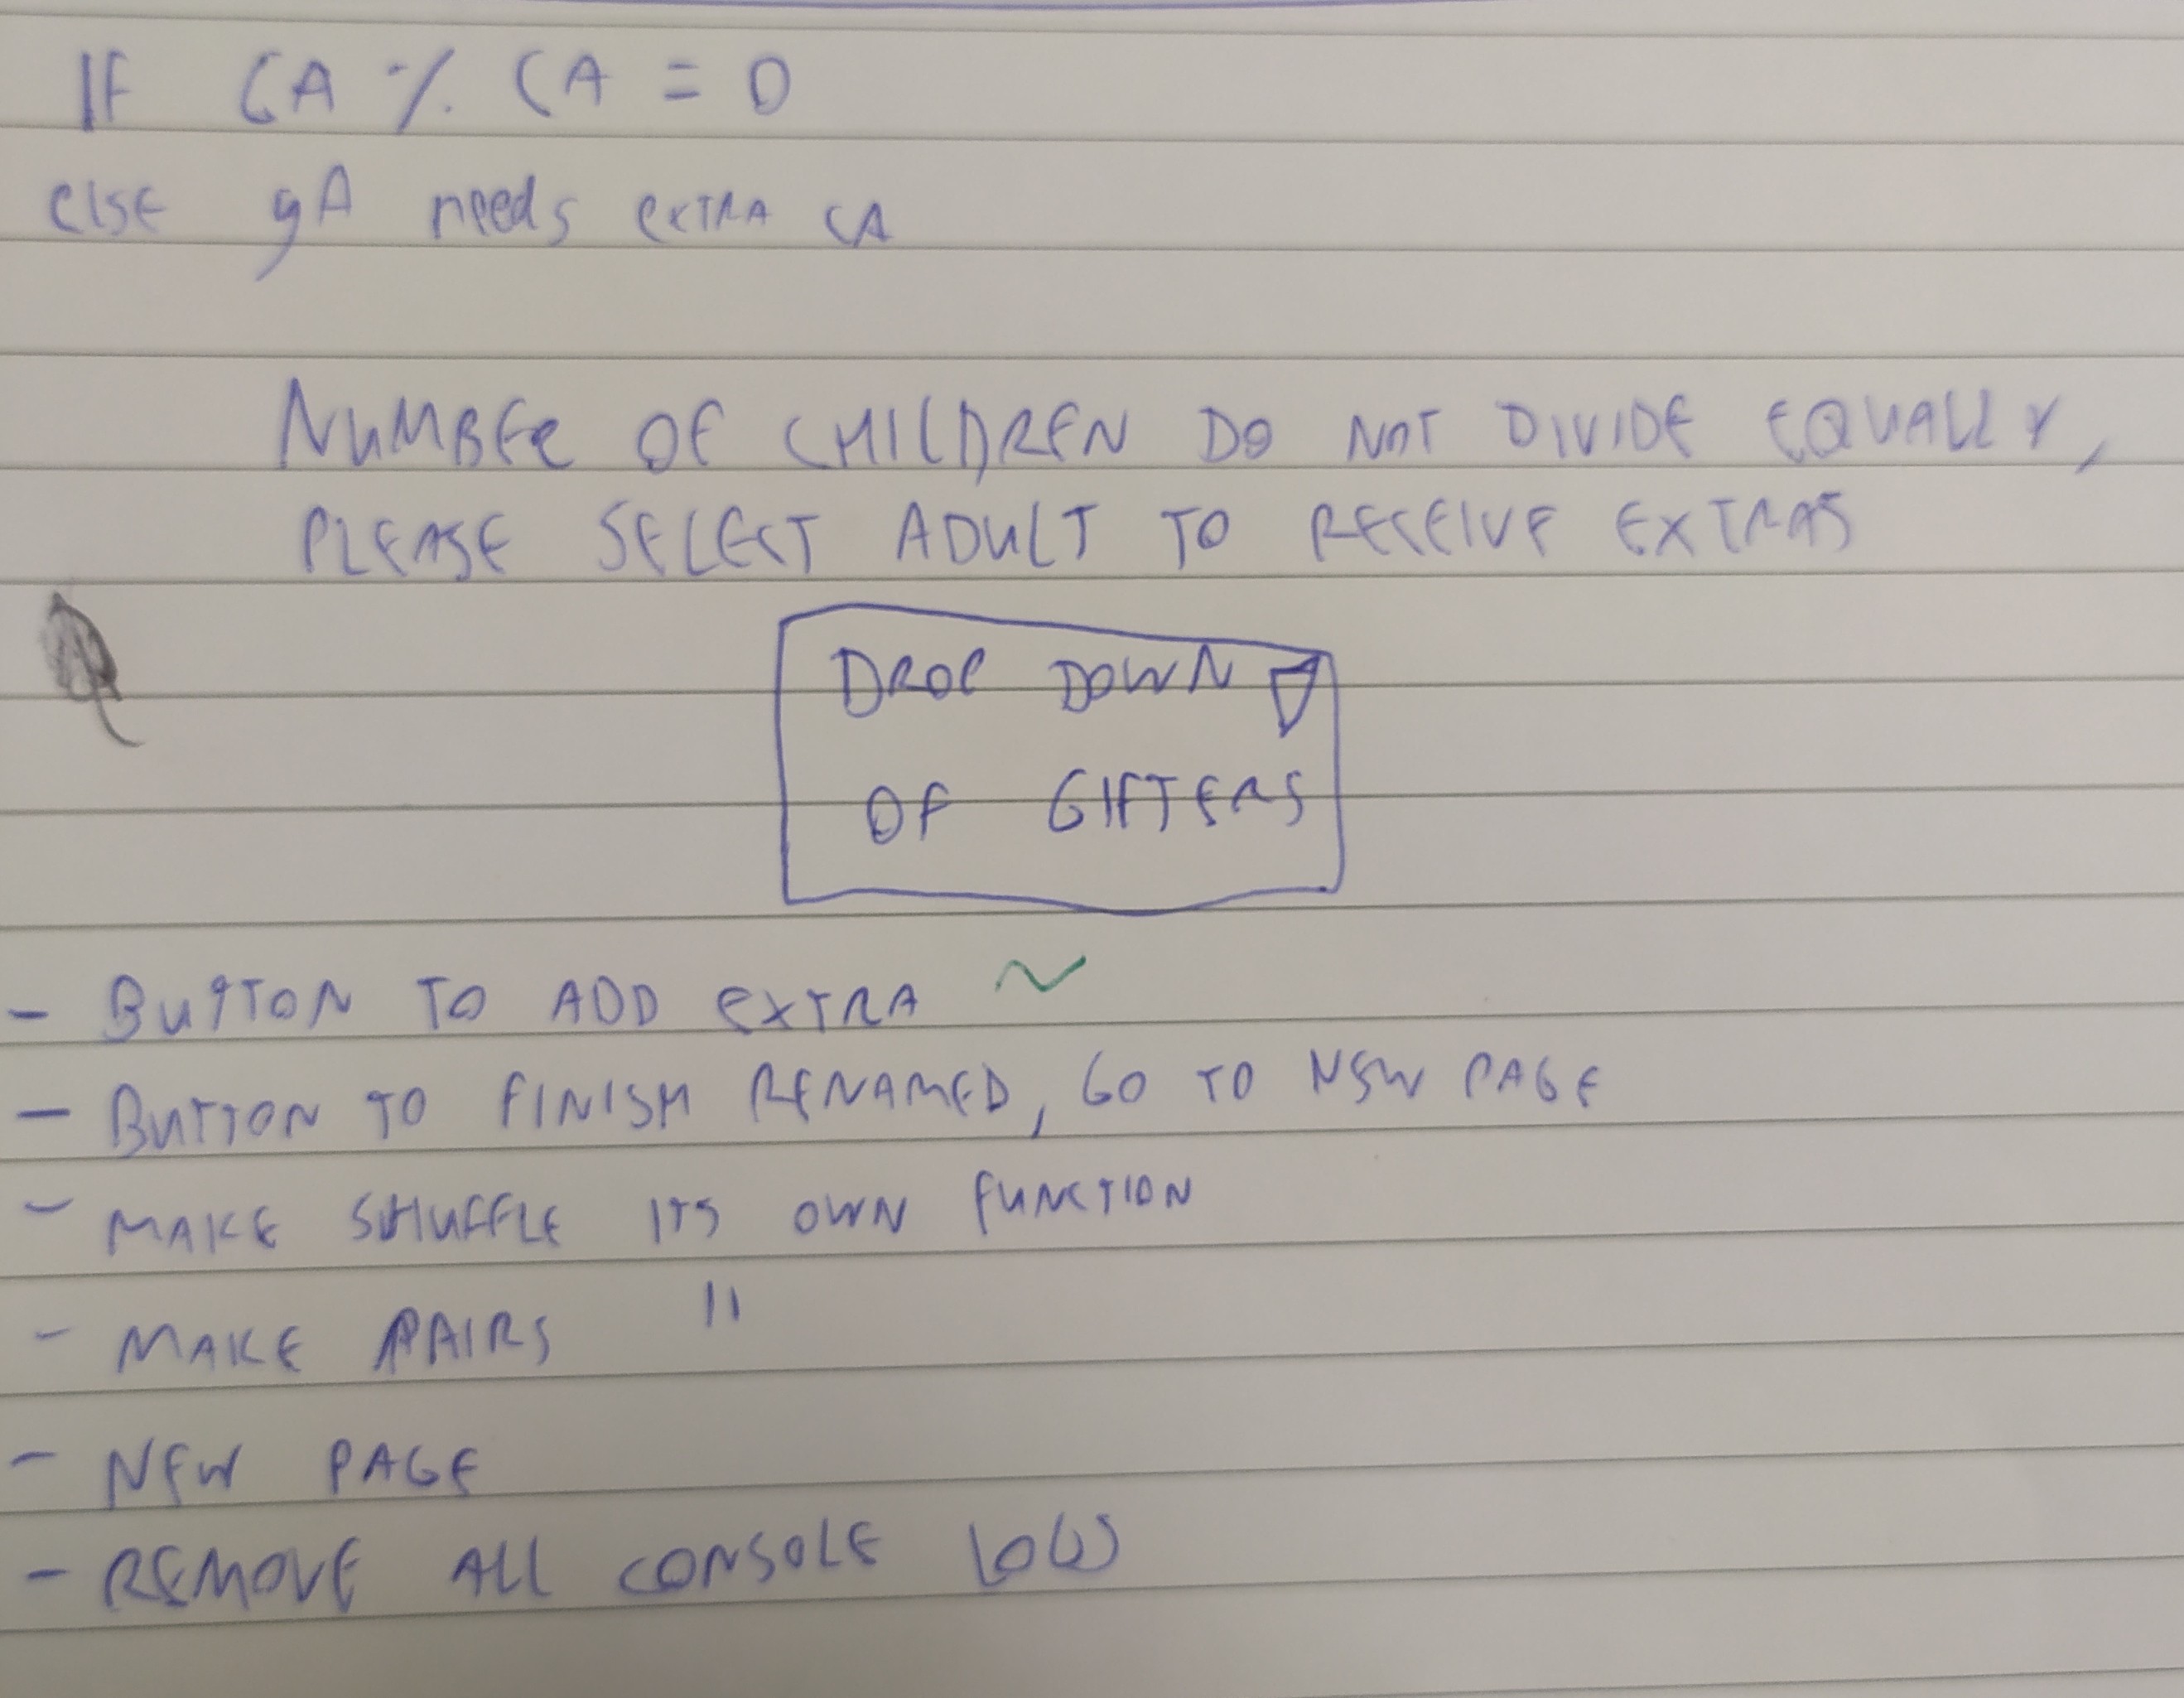 IF CA % CA = 0
else gA needs extra CA
NUMBER OF CHILDREN DO NOT DIVIDE EQUALLY,
PLEASE SELECT ADULT TO RECEIVE EXTRAS
DROP DOWN
OF GIFTERS
- BUTTON TO ADD EXTRA
- BUTTON TO FINISH RENAMED, GO TO NEW PAGE
- MAKE SHUFFLE ITS OWN FUNCTION
- MAKE PAIRS "
- NEW PAGE
- REMOVE ALL CONSOLE LOGS